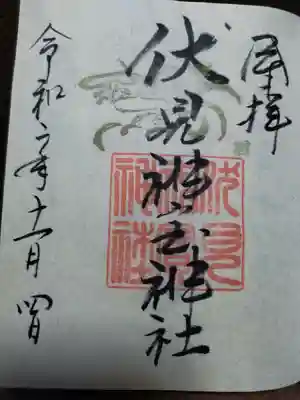 奉拝
伏見神宝神社
伏見
神宝
神社
令和二年十一月四日